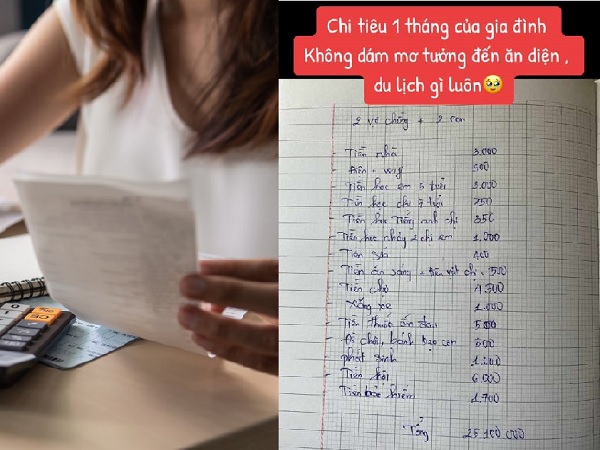 Chi tiêu 1 tháng của gia đình
Không dám mơ tưởng đến ăn diện ,
du lịch gì luôn🥹
2 vợ chồng + 2 con
- Tiền nhà 3.000
- Điện + 
- Tiền học em 5 tuổi 3.000
- Tiền học chị 9 tuổi 750
- Tiền học tiếng anh chị 350
- Tiền học nhảy 2 chị em 1.000
- Tiền sữa
- Tiền ăn sáng + tiền vặt chị 1500
- Tiền chợ 4.700
- Xăng xe 1.000
- Tiền thuốc ốm đau 500
- Đi chơi, bánh kẹo con
phát sinh
- Tiền 6.000
- Tiền bảo hiểm 1.700
Tổng 25 100 000